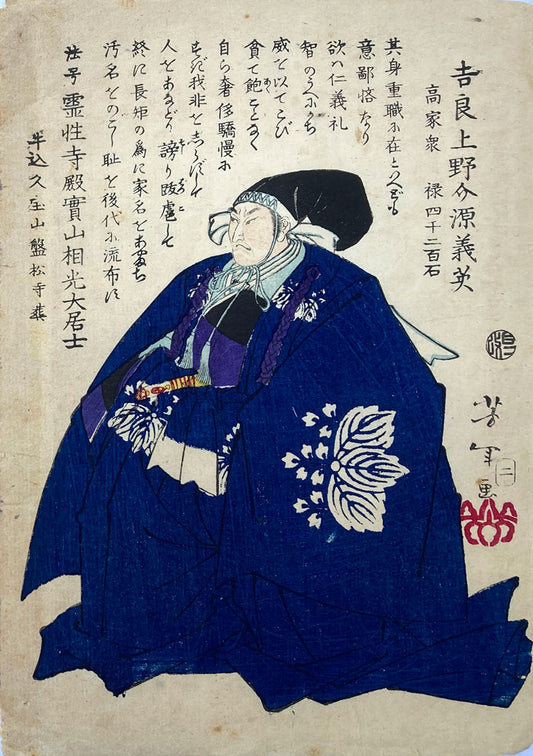 吉良上野介源義英
高家衆　禄四千二百石
其身重職に在といへども
意鄙悋なり
欲ハ仁義礼
智のうへにかち
威を以てこび
貪て飽ことなく
自ら奢侈驕慢に
我非を
人をあなどり謗り
終に長矩の為に家名を
汚名をのこし恥を後代に流布す
法号　霊性寺殿實山相光大居士
牛込久宝山盤松寺葬
芳年画
二